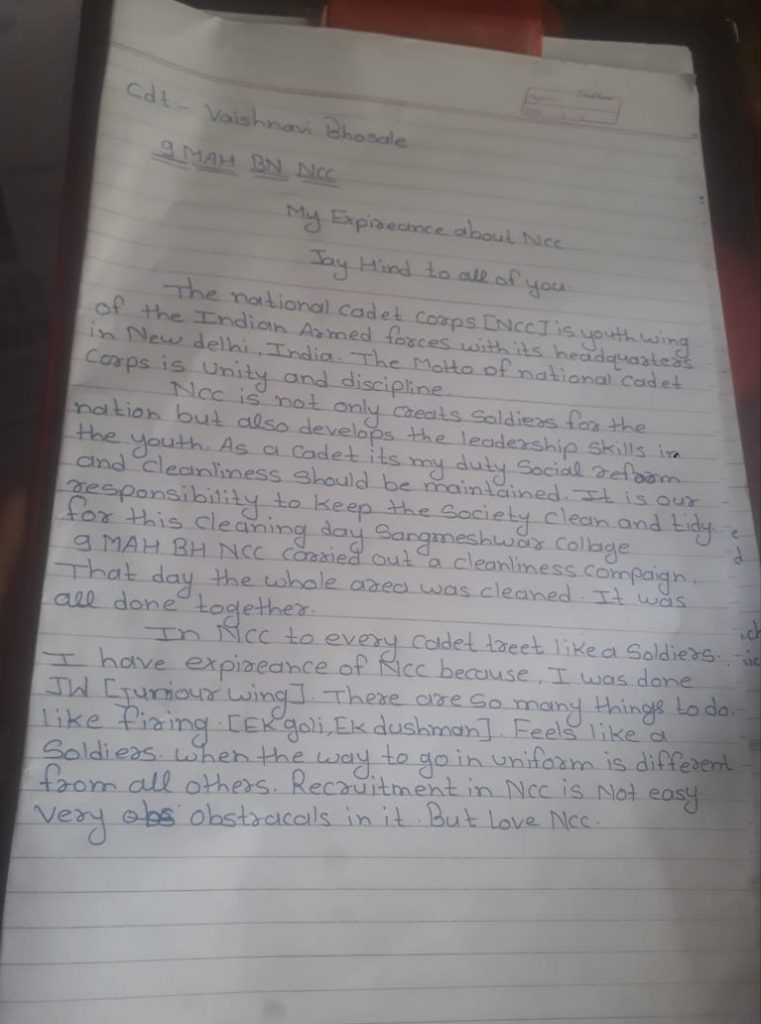 Cdt - Vaishnavi Bhosale
9 MAH BN NCC
My Expireance about NCC
Jay Hind to all of you.
The national cadet corps [NCC] is youth wing
of the Indian Armed forces with its headquarters
in New delhi, India. The Motto of national cadet
Corps is Unity and discipline.
NCC is not only creats Soldiers for the
nation but also develops the leadership skills in
the youth. As a cadet its my duty Social reform
and cleanliness should be maintained. It is our
responsibility to keep the Society clean and tidy
for this cleaning day Sangmeshwar Collage
9 MAH BH NCC carried out a cleanliness compaign.
That day the whole area was cleaned. It was
all done together.
In NCC to every cadet treet like a Soldiers.
I have expireance of NCC because, I was done
JW [Juniour wing]. There are so many things to do.
like firing. [Ek goli, Ek dushman]. Feels like a
Soldiers. when the way to go in uniform is different
from all others. Recruitment in NCC is Not easy
very obs obstracals in it. But Love NCC.